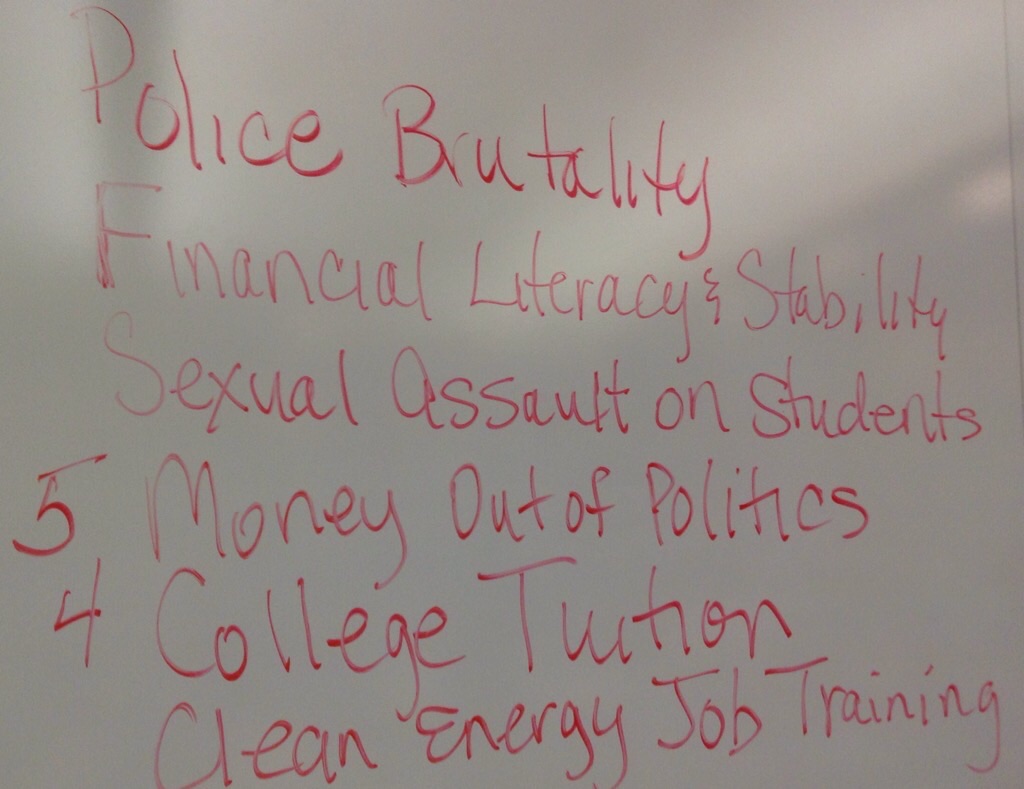 Police Brutality
Financial Literacy & Stability
Sexual Assault on Students
5 Money Out of Politics
4 College Tuition
Clean Energy Job Training